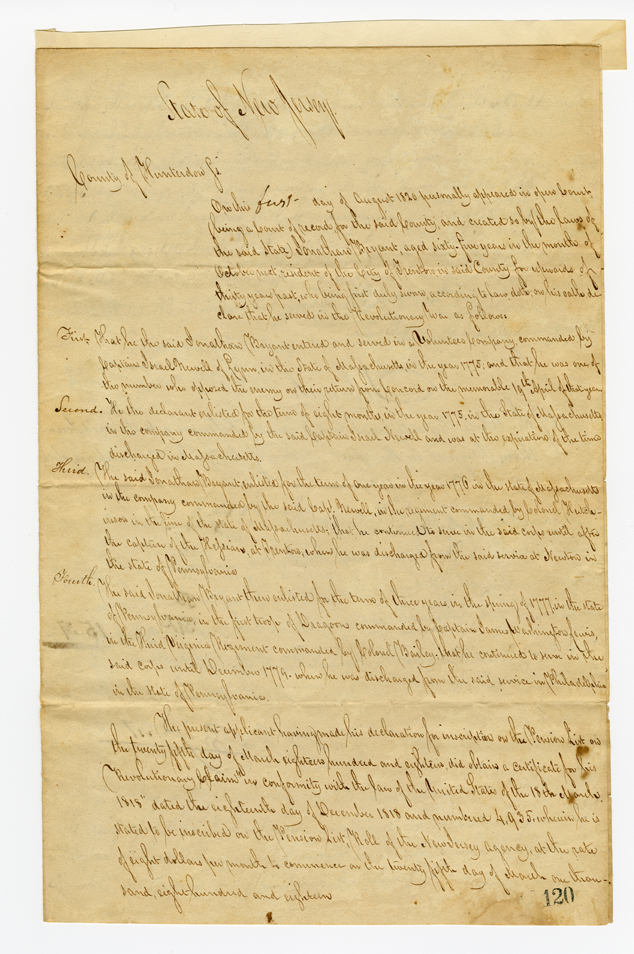 State of New Jersey
County of Hunterdon Ss
On this first day of August 1820 personally appeared in open Court,
(being a Court of record for the said County and created so by the Laws of
the said State) Jonathan Bryant, aged sixty-five years in the months of
October next resident of the City of Trenton in said County for upwards of
thirty years past, who being first duly sworn, according to law doth, on his oath de-
clare that he served in the Revolutionary War as follows
First That he the said Jonathan Bryant entered and served in a Volunteer Company commanded by
Captain Israel Newell of Lynn, in the State of Massachusetts in the year 1775, and that he was one of
the number who opposed the enemy on their return from Concord on the memorable 19th April of that year
Second. He the declarant enlisted for the term of eight months in the year 1775, in the State of Massachusetts
in the company commanded by the said Captain Newell and was at the expiration of the time
discharged in Massachusetts.
Third. The said Jonathan Bryant enlisted for the term of one year in the year 1776 in the state of Massachusetts
in the company commanded by the said Capt. Newell, in the regiment commanded by Colonel Hutch-
inson in the line of the state of Massachusetts, that he continued to serve in the said corps until after
the capture of the Hessians, at Trenton, when he was discharged from the said service at Newton in
the state of Pennsylvania
Fourth. The said Jonathan Bryant then enlisted for the term of three years in the spring of 1777, in the state
of Pennsylvania, in the first troop of Dragoons commanded by Captain James Washington
in the Third Virginia Regiment commanded by Colonel Bailey. that he continued to serve in the
said corps until December 1779. when he was discharged from the said service in Philadelphia
in the state of Pennsylvania.
The present applicant having made his declaration for inscription on the Pension List on
the twenty fifth day of March eighteen hundred and eighteen did obtain a certificate for his
"Revolutionary Claim" in conformity with the law of the United States of the 18th March
1818" dated the eighteenth day of December 1818 and numbered 4,935. wherein he is
stated to be inscribed on the Pension List, Roll of the New Jersey Agency, at the rate
of eight dollars per month to commence on the twenty fifth day of March one thou-
sand, eight hundred and eighteen
120